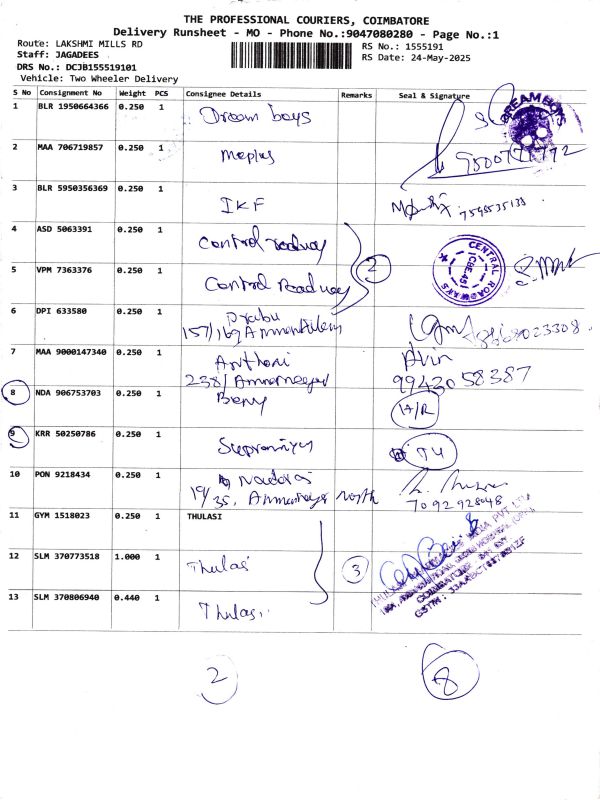 THE PROFESSIONAL COURIERS, COIMBATORE
Delivery Runsheet - MO - Phone No.:9047080280 - Page No.:1
Route: LAKSHMI MILLS RD
Staff: JAGADEES
DRS No.: DCJB155519101
Vehicle: Two Wheeler Delivery
RS No.: 1555191
RS Date: 24-May-2025
S No Consignment No Weight PCS Consignee Details Remarks Seal & Signature
1 BLR 1950664366 0.250 1 Dream boys
DREAM BOYS
2 MAA 706719857 0.250 1
3 BLR 5950356369 0.250 1 IKF
4 ASD 5063391 0.250 1 Central roadway
5 VPM 7363376 0.250 1 Central Roadway 2
CENTRAL ROADWAYS
CBE-45
6 DPI 633580 0.250 1 Prabu
157/169
7 MAA 9000147340 0.250 1 Anthoni
238/
9943058387
8 NDA 906753703 0.250 1
9 KRR 50250786 0.250 1
10 PON 9218434 0.250 1
19/35, North
7092928048
11 GYM 1518023 0.250 1 THULASI
12 SLM 370773518 1.000 1 Thulasi 3
13 SLM 370806940 0.440 1 Thulasi
2 8